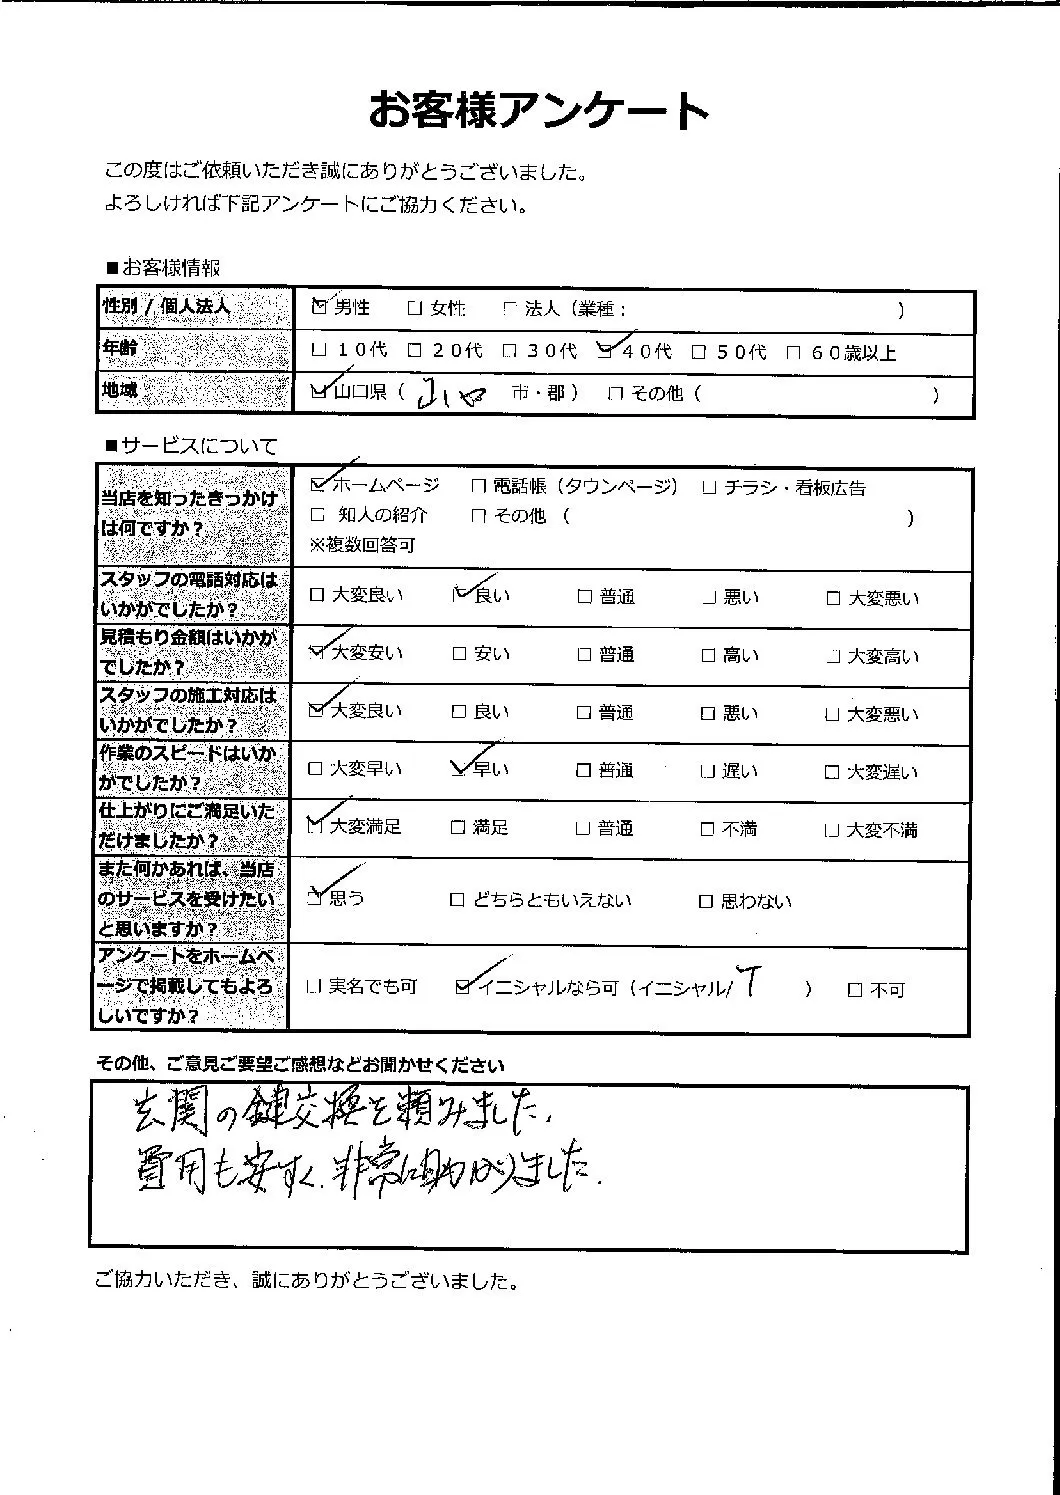 お客様アンケート
この度はご依頼いただき誠にありがとうございました。
よろしければ下記アンケートにご協力ください。
■お客様情報
性別 / 個人法人 ☑男性 □女性 □法人（業種： ）
年齢 □10代 □20代 □30代 ☑40代 □50代 □60歳以上
地域 ☑山口県（ 山口 市・郡） □その他（ ）
■サービスについて
当店を知ったきっかけ
は何ですか？
☑ホームページ □電話帳（タウンページ） □チラシ・看板広告
□ 知人の紹介 □その他（ ）
※複数回答可
スタッフの電話対応は
いかがでしたか？
□大変良い ☑良い □普通 □悪い □大変悪い
見積もり金額はいかが
でしたか？
☑大変安い □安い □普通 □高い □大変高い
スタッフの施工対応は
いかがでしたか？
☑大変良い □良い □普通 □悪い □大変悪い
作業のスピードはいか
がでしたか？
□大変早い ☑早い □普通 □遅い □大変遅い
仕上がりにご満足いた
だけましたか？
☑大変満足 □満足 □普通 □不満 □大変不満
また何かあれば、当店
のサービスを受けたい
と思いますか？
☑思う □どちらともいえない □思わない
アンケートをホームペ
ージで掲載してもよろ
しいですか？
□実名でも可 ☑イニシャルなら可（イニシャル/ T ） □不可
その他、ご意見ご要望ご感想などお聞かせください
玄関の鍵交換を頼みました.
費用も安すく.非常に助かりました.
ご協力いただき、誠にありがとうございました。